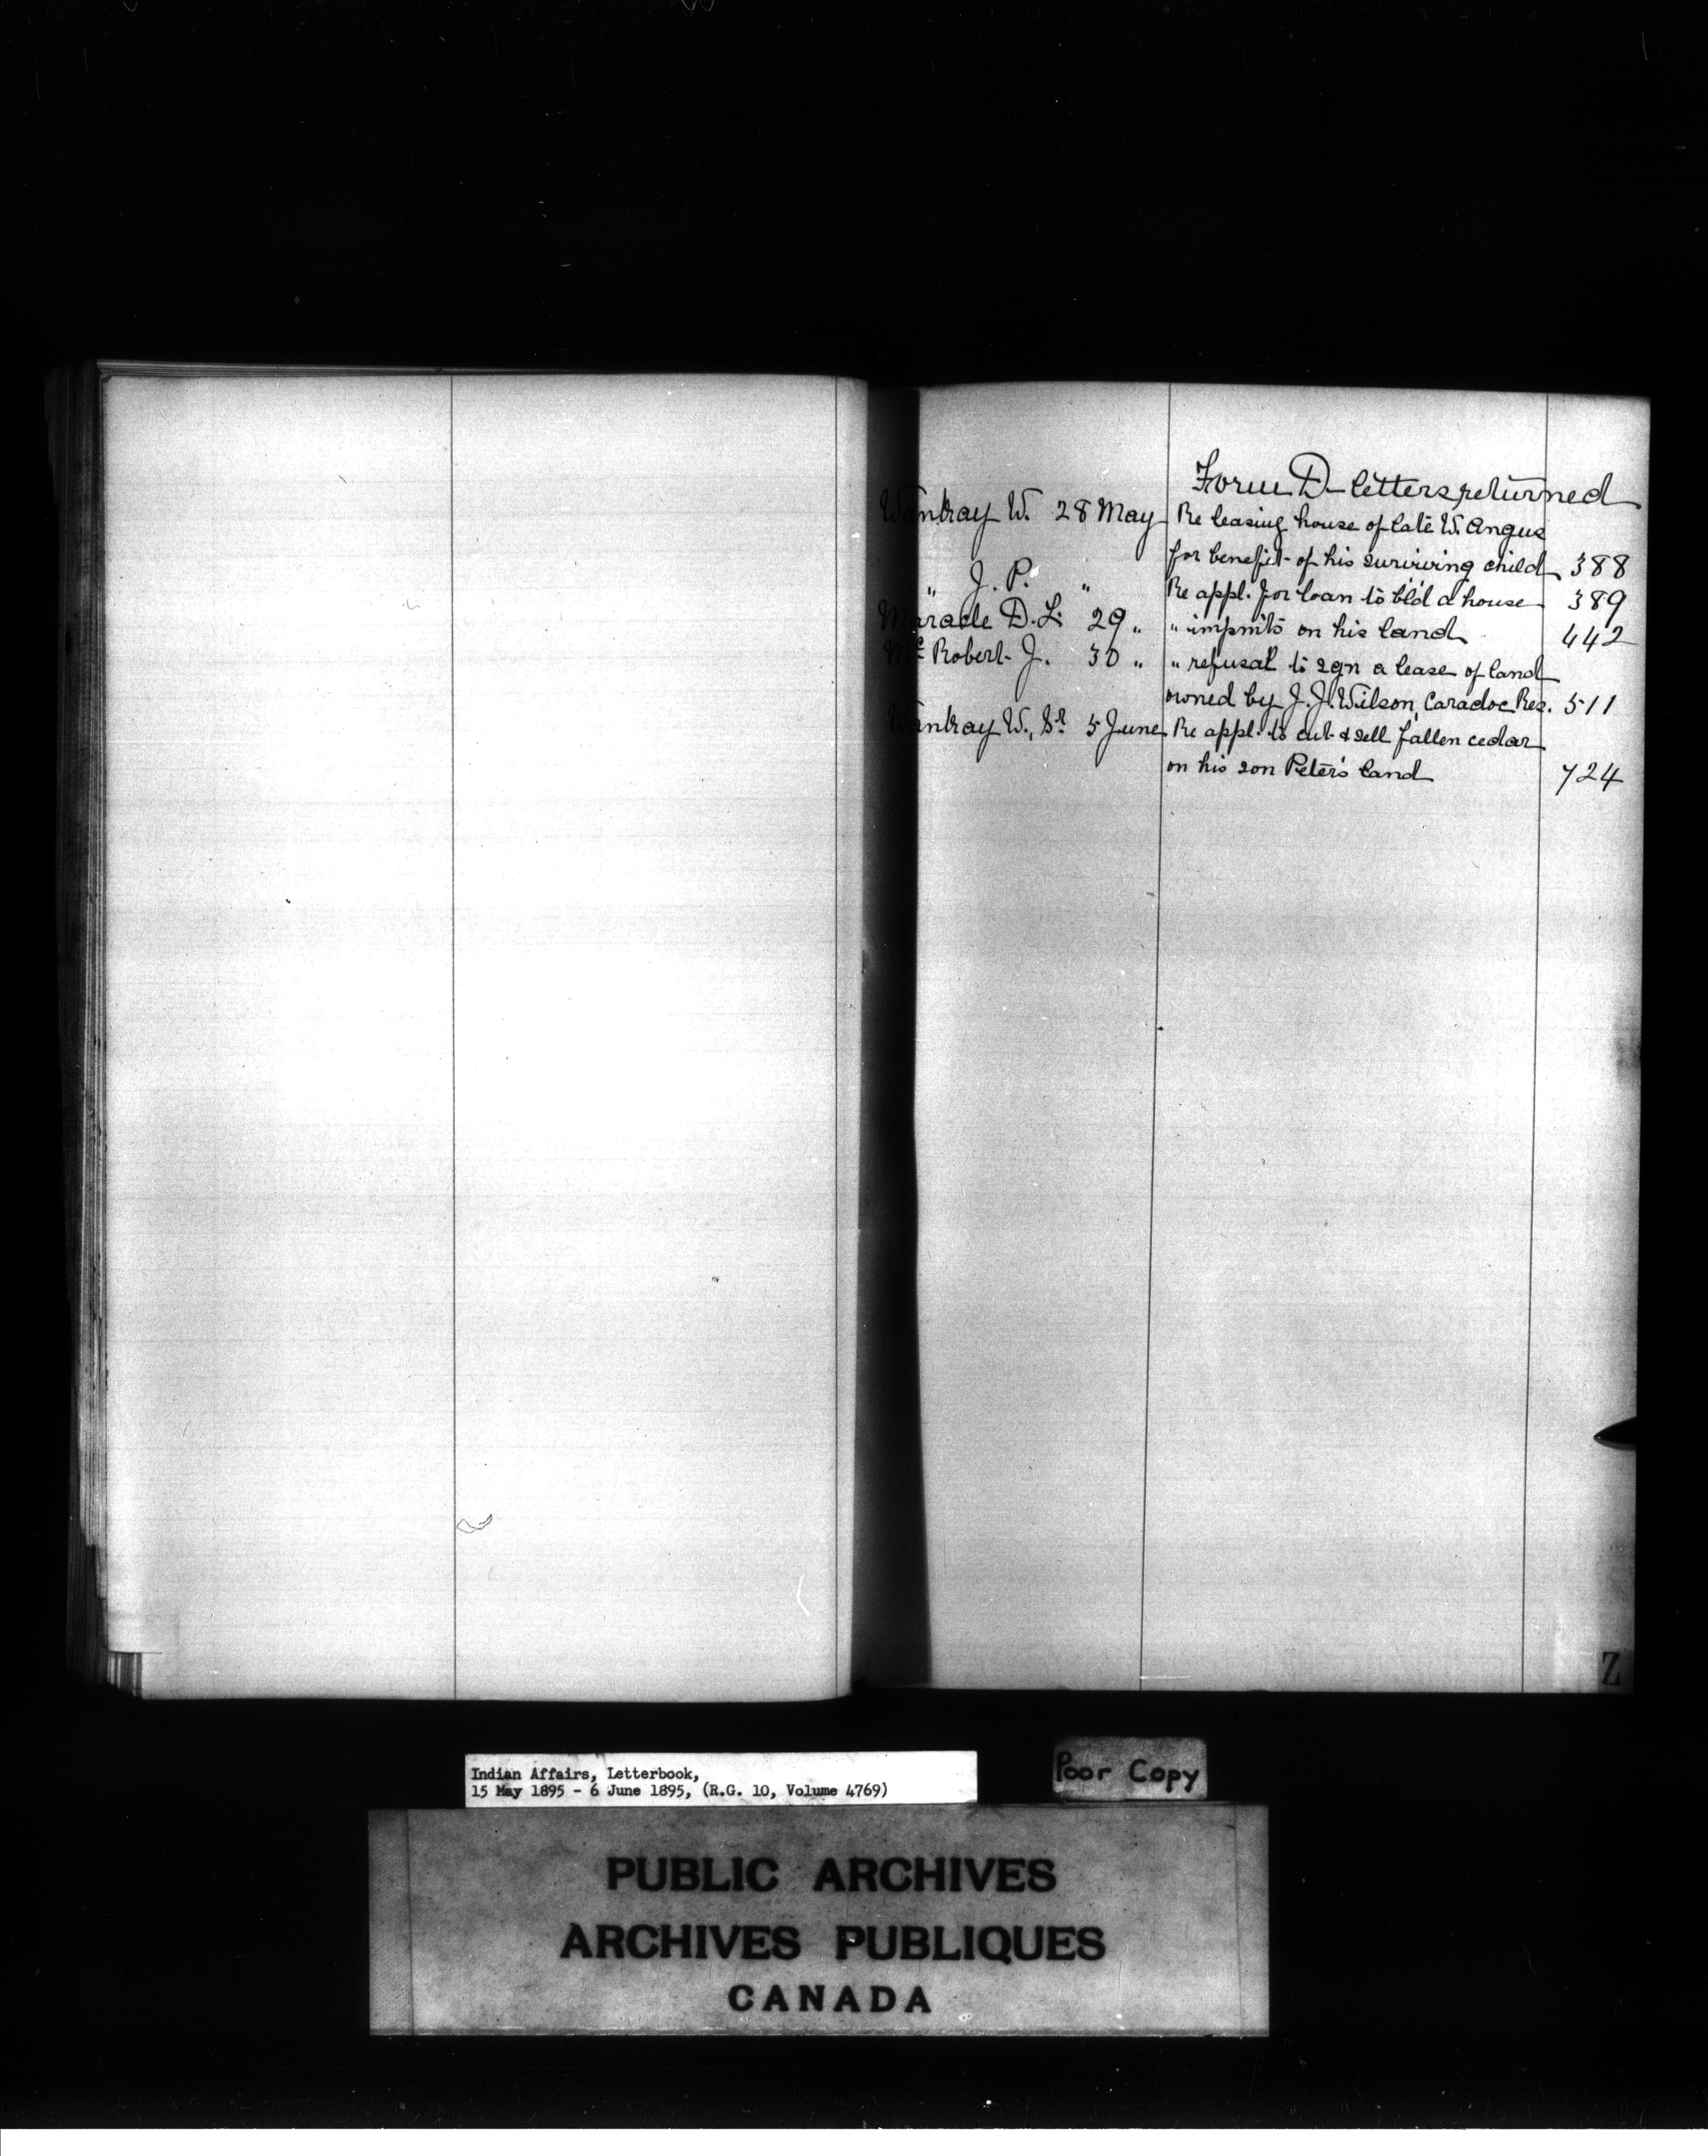 Form D - letters returned
Wantray W. 28 May Re leasing house of late W. Angus
for benefit of his surviving child 388
" J. P. " Re appl. for loan to b'l'd a house 389
Maracle D. L. 29 " " impmts on his land 442
Mc Robert J. 30 " " refusal to sgn a lease of land
owned by J. J. Wilson, Caradoc Res. 511
Wantray W., Sr 5 June Re appl. to cut & sell fallen cedar
on his son Peter's land 724
Z
Indian Affairs, Letterbook,
15 May 1895 - 6 June 1895, (R.G. 10, Volume 4769)
Poor Copy
PUBLIC ARCHIVES
ARCHIVES PUBLIQUES
CANADA